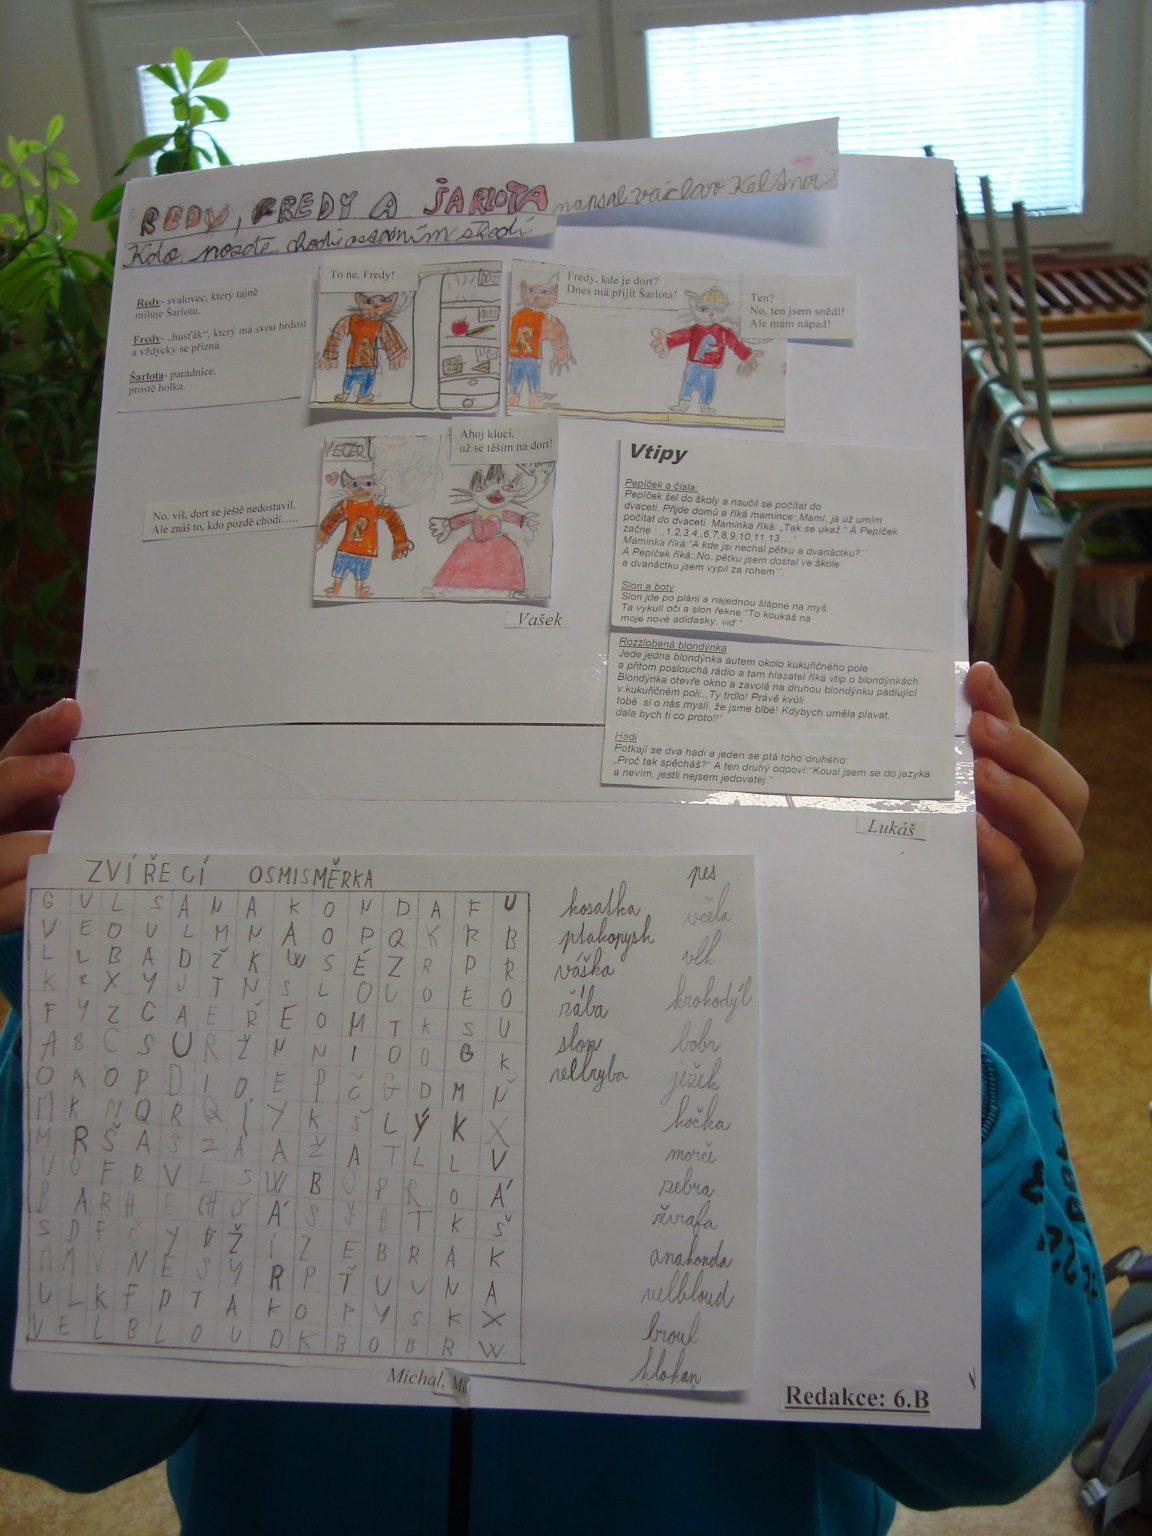 REDY, FREDY A ŠARLOTA napsal václav
Kdo pozdě chodí sám sobě škodí
Redy- svalovec, který tajně
miluje Šarlotu.
Fredy- „husťák“, který má svou hrdost
a vždycky se přizná.
Šarlota- parádnice,
prostě holka.
To ne, Fredy!
Fredy, kde je dort?
Dnes má přijít Šarlota!
Ten?
No, ten jsem snědl!
Ale mám nápad!
VEČER
Ahoj kluci,
už se těším na dort!
No, víš, dort se ještě nedostavil.
Ale znáš to, kdo pozdě chodí…..
Vašek
Vtipy
Pepíček a čísla:
Pepíček šel do školy a naučil se počítat do
dvaceti. Přijde domů a říká mamince:„Mami, já už umím
počítat do dvaceti. Maminka říká: „Tak se ukaž.“ A Pepíček
začne :„1,2,3,4,,6,7,8,9,10,11,13....“
Maminka říká:“A kde jsi nechal pětku a dvanáctku?´´
A Pepíček říká:„No..pětku jsem dostal ve škole
a dvanáctku jsem vypil za rohem´´.
Slon a boty
Slon jde po pláni a najednou šlápne na myš.
Ta vykulí oči a slon řekne:“To koukáš na
moje nové adidasky, viď.“
Rozzlobená blondýnka
Jede jedna blondýnka autem okolo kukuřičného pole
a přitom poslouchá rádio a tam hlasatel říká vtip o blondýnkách.
Blondýnka otevře okno a zavolá na druhou blondýnku pádlující
v kukuřičném poli:„Ty trdlo! Právě kvůli
tobě si o nás myslí, že jsme blbé! Kdybych uměla plavat,
dala bych ti co proto!!“
Hadi
Potkají se dva hadi a jeden se ptá toho druhého:
„Proč tak spěcháš?“ A ten druhý odpoví:“Kousl jsem se do jazyka
a nevím, jestli nejsem jedovatej.“
Lukáš
ZVÍŘECÍ OSMISMĚRKA
G U L S A N A K O N D A F U
V E O U L M N A O P Q K R B
L L B A D Ž K W S É Z R P R
K X Y J T N S L O U O E O
F Y Z C A E Ř E O M T K S U
A B C S U R Ž N N I O O G K
O A O P D I O E P Č G D M Ň
M K N Q R Q Í Y K Š L Ý K X
M R Š A S Z A A Ž A T L L V
U O F R V L S W B O P R O Á
B A R H E CH O Á S Š B T K Š
S D F Č Y Ž Í Z E B R A K
N E S Y R P Ť U U N A
U L K F P T A K O P Y S K X
V E L B L O U D K B O B R W
kosatka
ptakopysk
váška
žába
slon
velryba
pes
včela
vlk
krokodýl
bobr
ježek
kočka
morče
zebra
žirafa
anakonda
velbloud
brouk
klokan
Michal,
Redakce: 6.B